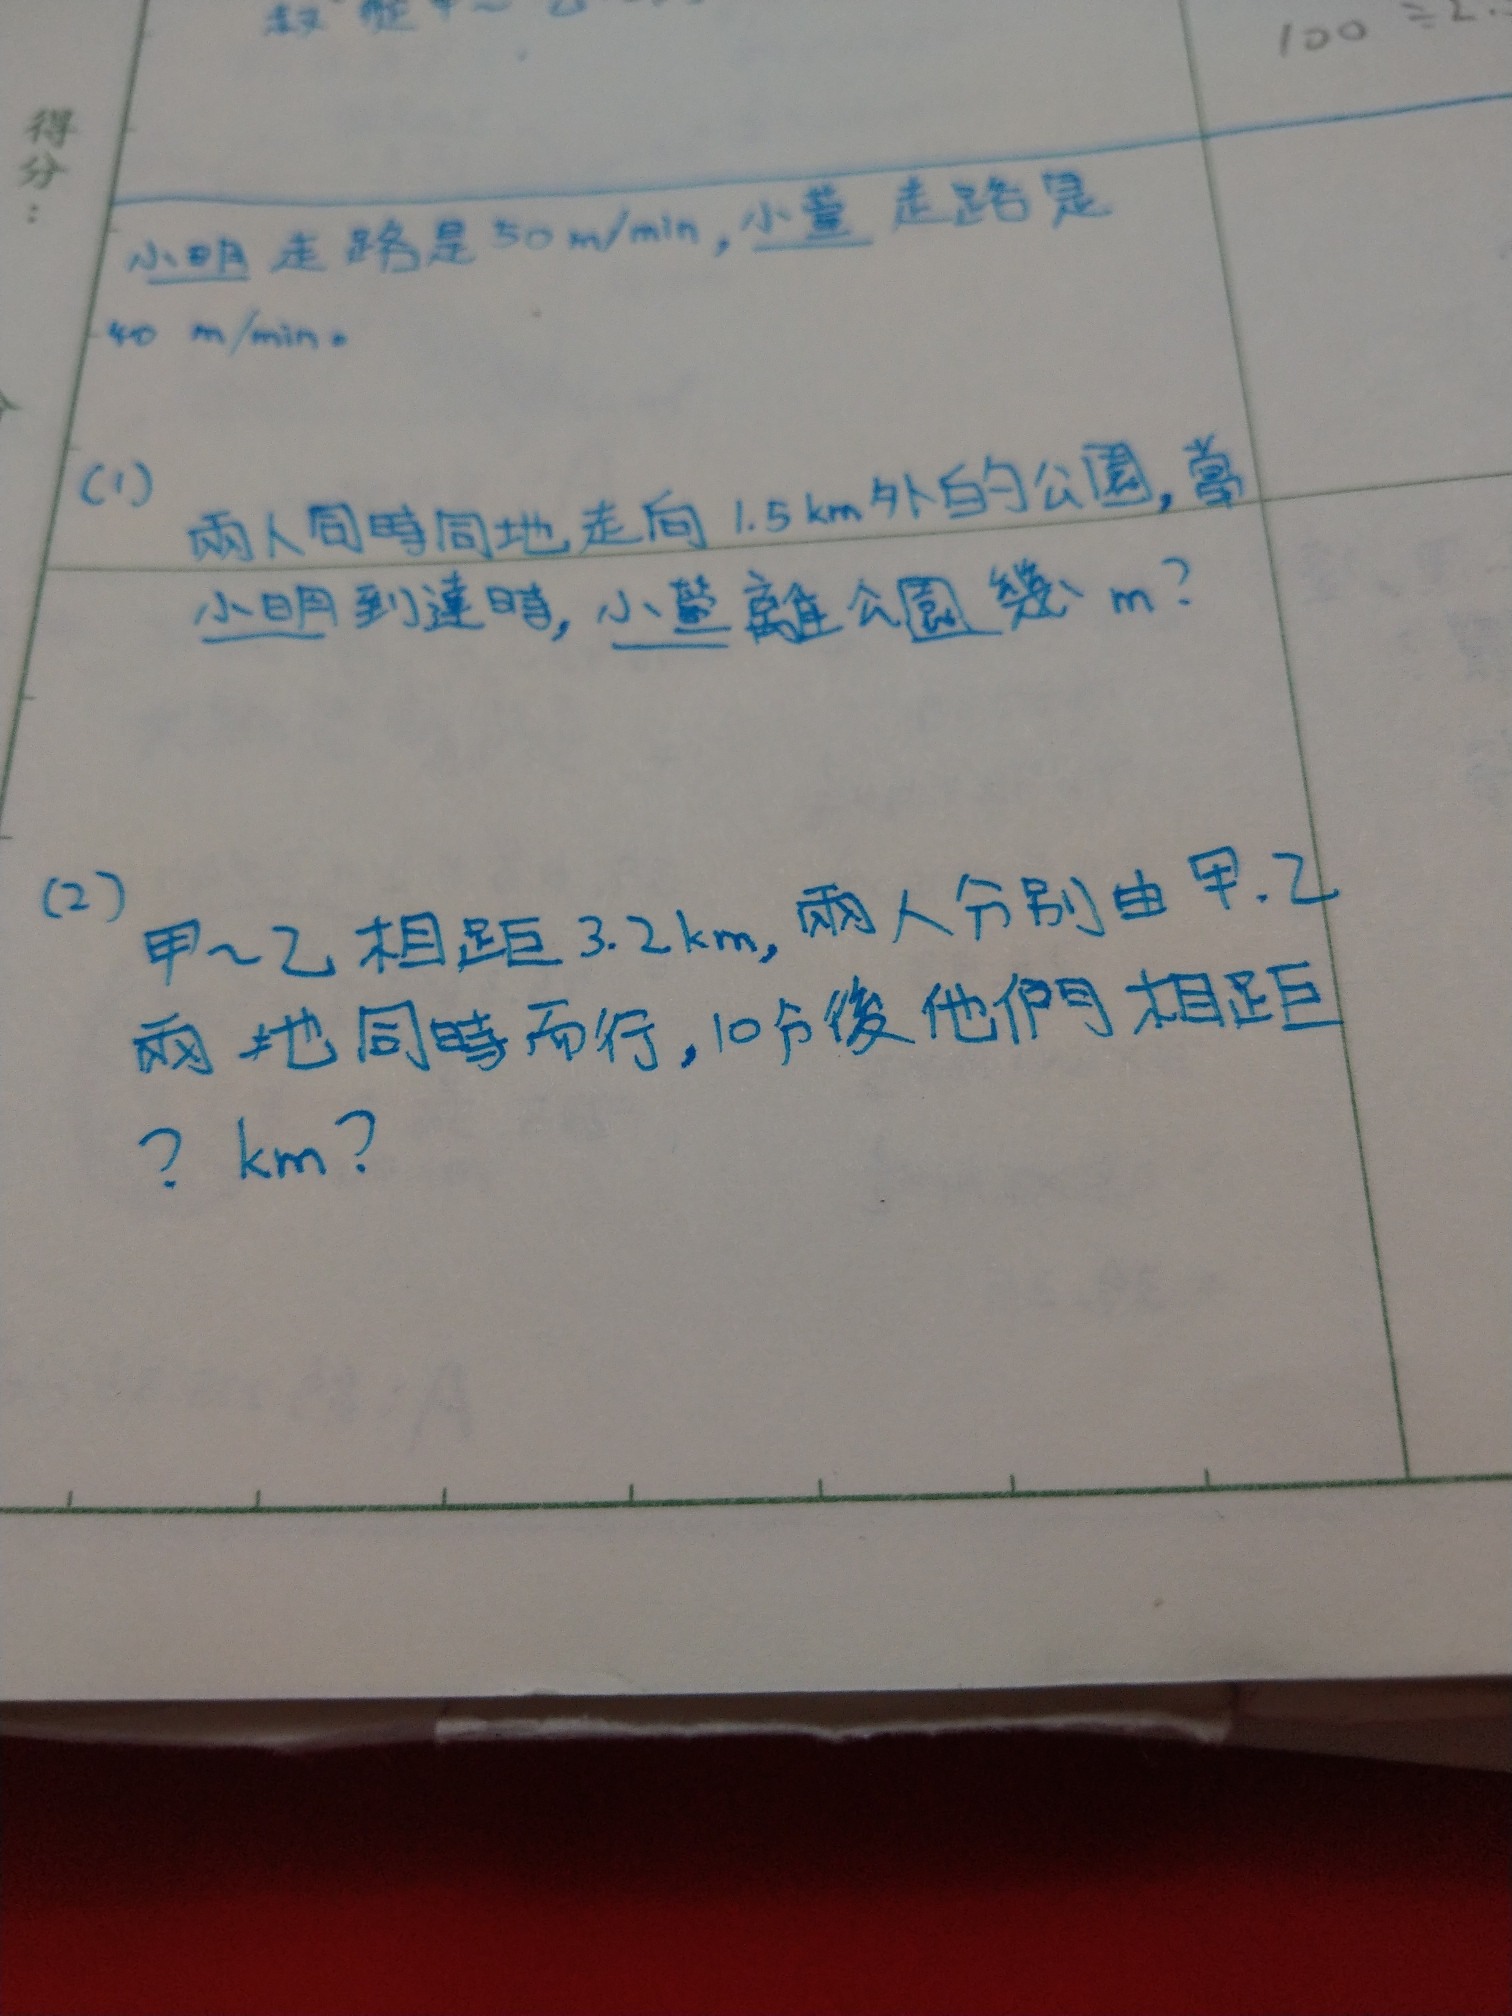 100 ÷ 2.
得分：
小明走路是50m/min,小萱走路是
40 m/min。
(1)
兩人同時同地走向1.5km外的公園,當
小明到達時,小萱離公園幾m?
(2)
甲~乙相距3.2km,兩人分別由甲.乙
兩地同時而行,10分後他們相距
? km?